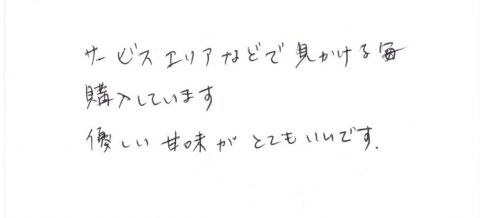 サービスエリアなどで見かける毎
購入しています
優しい甘味がとてもいいです.